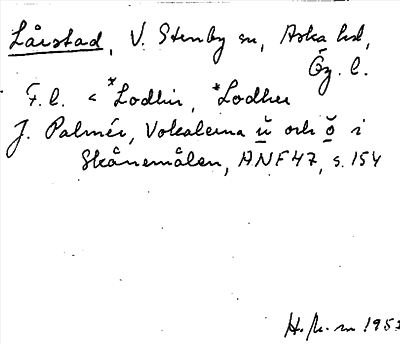 Lårstad, V. Stenby sn, Aska hd,
Ög. l.
F.l. < *Lodhin, *Lodher
J. Palmér, Vokalerna ŭ och ŏ i
Skånemålen, ANF 47, s. 154
H. 195